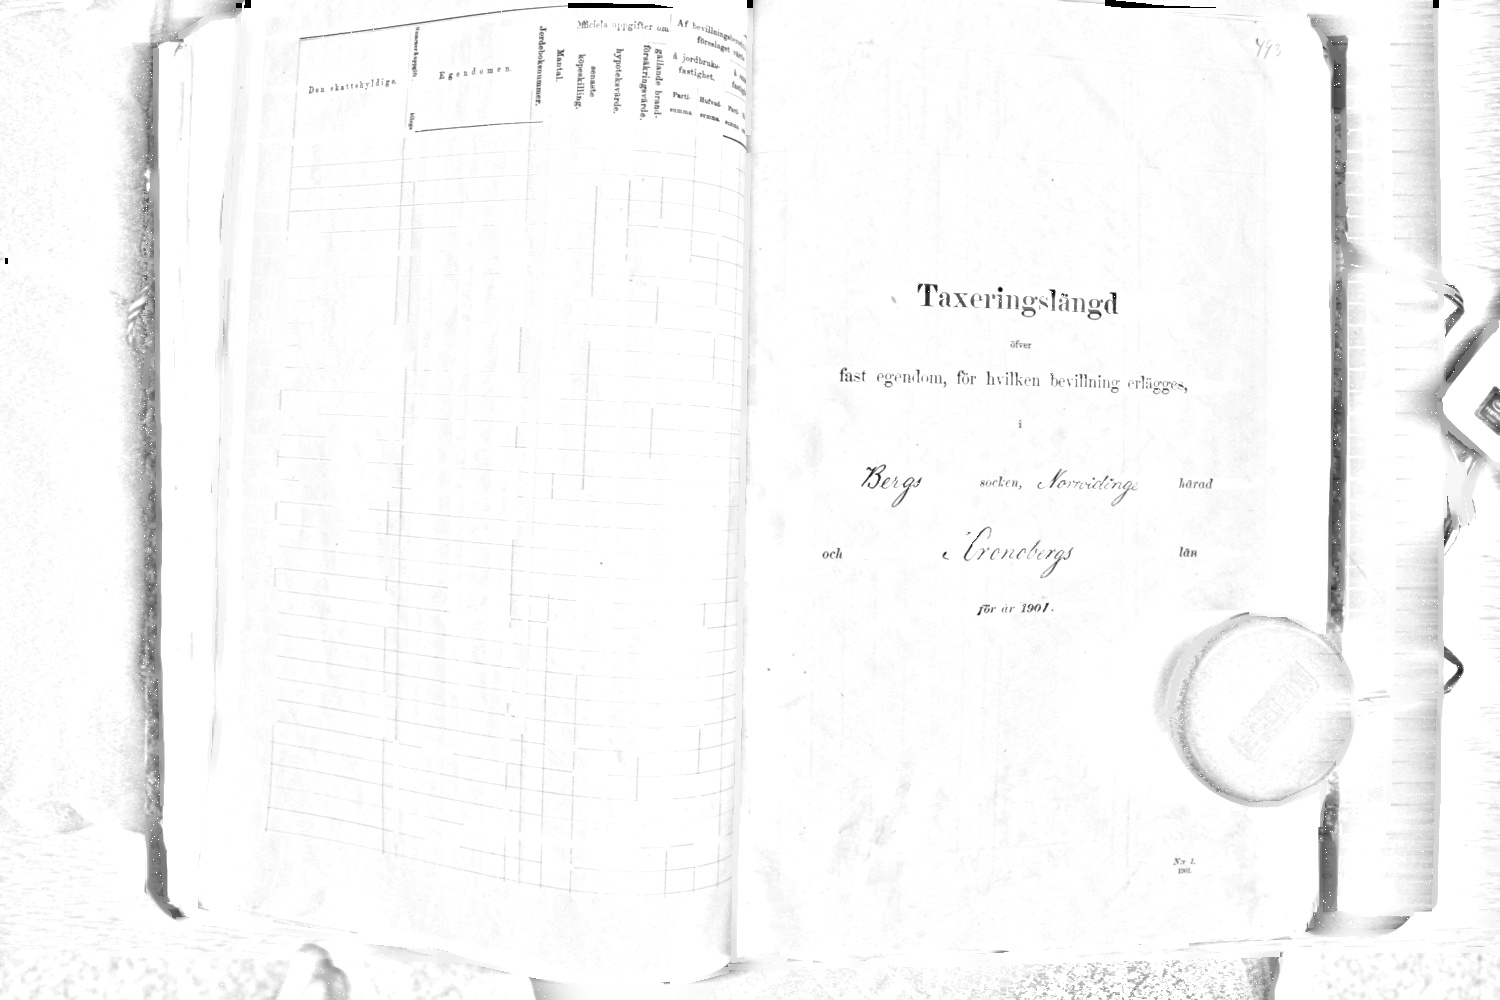 Den skattskyldige.
Egendomen.
Jordeboksnummer.
Mantal.
Officiela uppgifter om
senaste köpeskilling.
hypoteksvärde.
gällande brand-
försäkringsvärde.
Af bevillnings
föreslaget
å jordbruks-
fastighet.
Parti-
summa.
Hufvud-
summa.
493
Taxeringslängd
öfver
fast egendom, för hvilken bevillning erlägges,
i
Bergs socken, Norrvidinge härad
och Kronobergs län
för år 1901.
N:r 1.
1901.